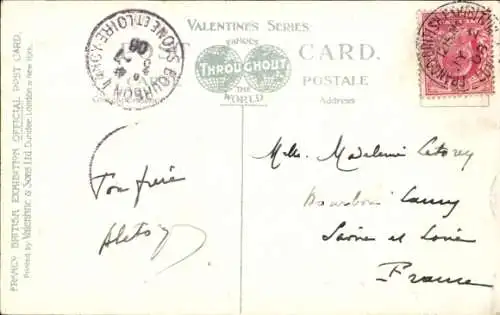 VALENTINE'S SERIES
FAMOUS
THROUGHOUT
THE WORLD
CARD.
POSTALE
Address
FRANCO BRITISH EXHIBITION OFFICIAL POST CARD.
Printed by Valentine & Sons Ltd Dundee, London & New York.
BOURBON LANCY
SAONE-ET-LOIRE
08
Ton frère
Melle Madeleine
Bourbon Lancy
Saône et Loire
France